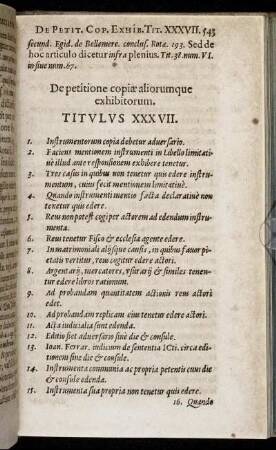 DE PETIT. COP. EXHIB. TIT. XXXVII. 543
secund. Egid. de Bellamere. conclus. Rotæ. 193. Sed de
hoc articulo dicetur infra plenius. Tit. 38. num. VI.
in siue num. 67.
De petitione copiæ aliorumque
exhibitorum.
TITVLVS XXXVII.
1. Instrumentorum copia debetur aduersario.
2. Faciens mentionem instrumenti in libello limitati-
uè illud ante responsionem exhibere tenetur.
3. Tres casus in quibus non tenetur quis edere instru-
mentum, cuius fecit mentionem limitatiuè.
4. Quando instrumenti mentio facta declaratiuè non
tenetur quis edere.
5. Reus non potest cogi per actorem ad edendum instru-
menta.
6. Reus tenetur Fisco & ecclesia agente edere.
7. In matrimoniali aliisque causis, in quibus fauor pi-
etatis vertitur, reus cogitur edere actori.
8. Argentarij, mercatores, vsurarij & similes tenen-
tur edere libros rationum.
9. Ad probandam quantitatem actionis reus actori
edet.
10. Ad probandam replicam eius tenetur edere actori.
11. Acta iudicialia sunt edenda.
12. Editio fiet aduersario sine die & consule.
13. Ioan. Ferrar. iudicium de sententia ICti. circa edi-
tionem sine die & consule.
14. Instrumenta communia ac propria petentis cum die
& consule edenda.
15. Instrumenta sua propria non tenetur quis edere.
16. Quando